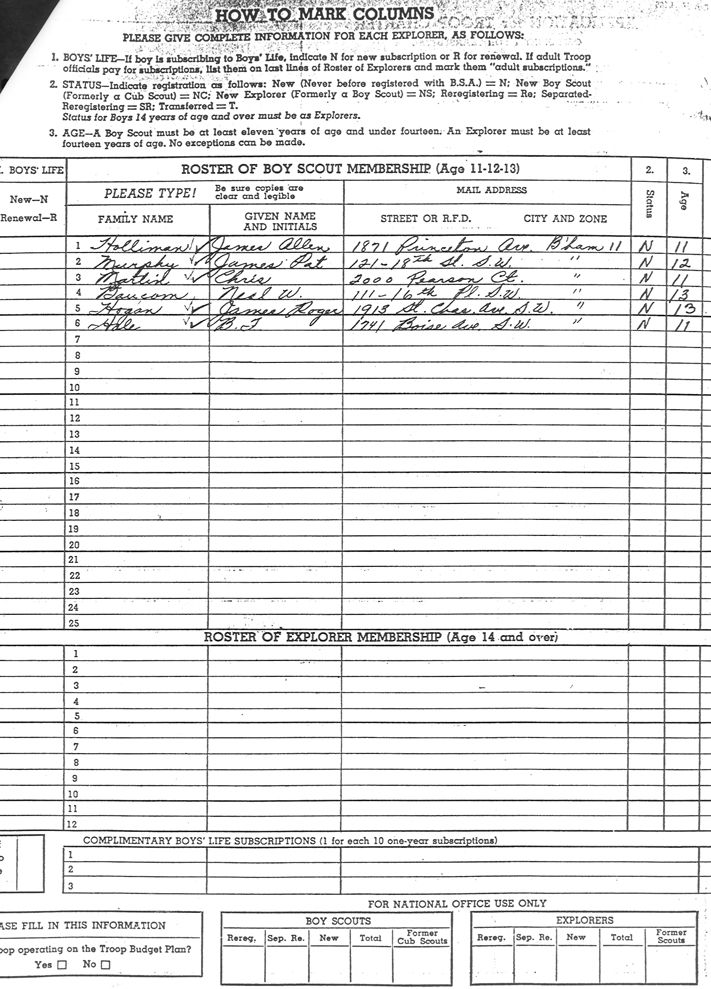 HOW TO MARK COLUMNS
PLEASE GIVE COMPLETE INFORMATION FOR EACH EXPLORER, AS FOLLOWS:
1. BOYS' LIFE—If boy is subscribing to Boys' Life, indicate N for new subscription or R for renewal. If adult Troop
officials pay for subscriptions, list them on last lines of Roster of Explorers and mark them "adult subscriptions."
2. STATUS—Indicate registration as follows: New (Never before registered with B.S.A.) = N; New Boy Scout
(Formerly a Cub Scout) = NC; New Explorer (Formerly a Boy Scout) = NS; Reregistering = Re; Separated-
Reregistering = SR; Transferred = T.
Status for Boys 14 years of age and over must be as Explorers.
3. AGE—A Boy Scout must be at least eleven years of age and under fourteen. An Explorer must be at least
fourteen years of age. No exceptions can be made.
. BOYS' LIFE ROSTER OF BOY SCOUT MEMBERSHIP (Age 11-12-13) 2. 3.
New—N
Renewal—R
PLEASE TYPE! Be sure copies are
clear and legible
MAIL ADDRESS
Status
Age
FAMILY NAME GIVEN NAME
AND INITIALS
STREET OR R.F.D. CITY AND ZONE
1 Holliman James Allen 1871 Princeton Ave. B'ham 11 N 11
2 Murphy James Pat 121-18th St. S.W. " N 12
3 Martin Chris 2000 Pearson Ct. " N 11
4 Baucom, Neal W. 111-16th Pl. S.W. " N 13
5 Hogan James Roger 1913 St. Chas. Ave. S.W. " N 13
6 Hale B.J 1741 Boise Ave. S.W. " N 11
7
8
9
10
11
12
13
14
15
16
17
18
19
20
21
22
23
24
25
ROSTER OF EXPLORER MEMBERSHIP (Age 14 and over)
1
2
3
4
5
6
7
8
9
10
11
12
COMPLIMENTARY BOYS' LIFE SUBSCRIPTIONS (1 for each 10 one-year subscriptions)
1
2
3
FOR NATIONAL OFFICE USE ONLY
ASE FILL IN THIS INFORMATION
oop operating on the Troop Budget Plan?
Yes No
BOY SCOUTS
Rereg. Sep. Re. New Total Former
Cub Scouts
EXPLORERS
Rereg. Sep. Re. New Total Former
Scouts